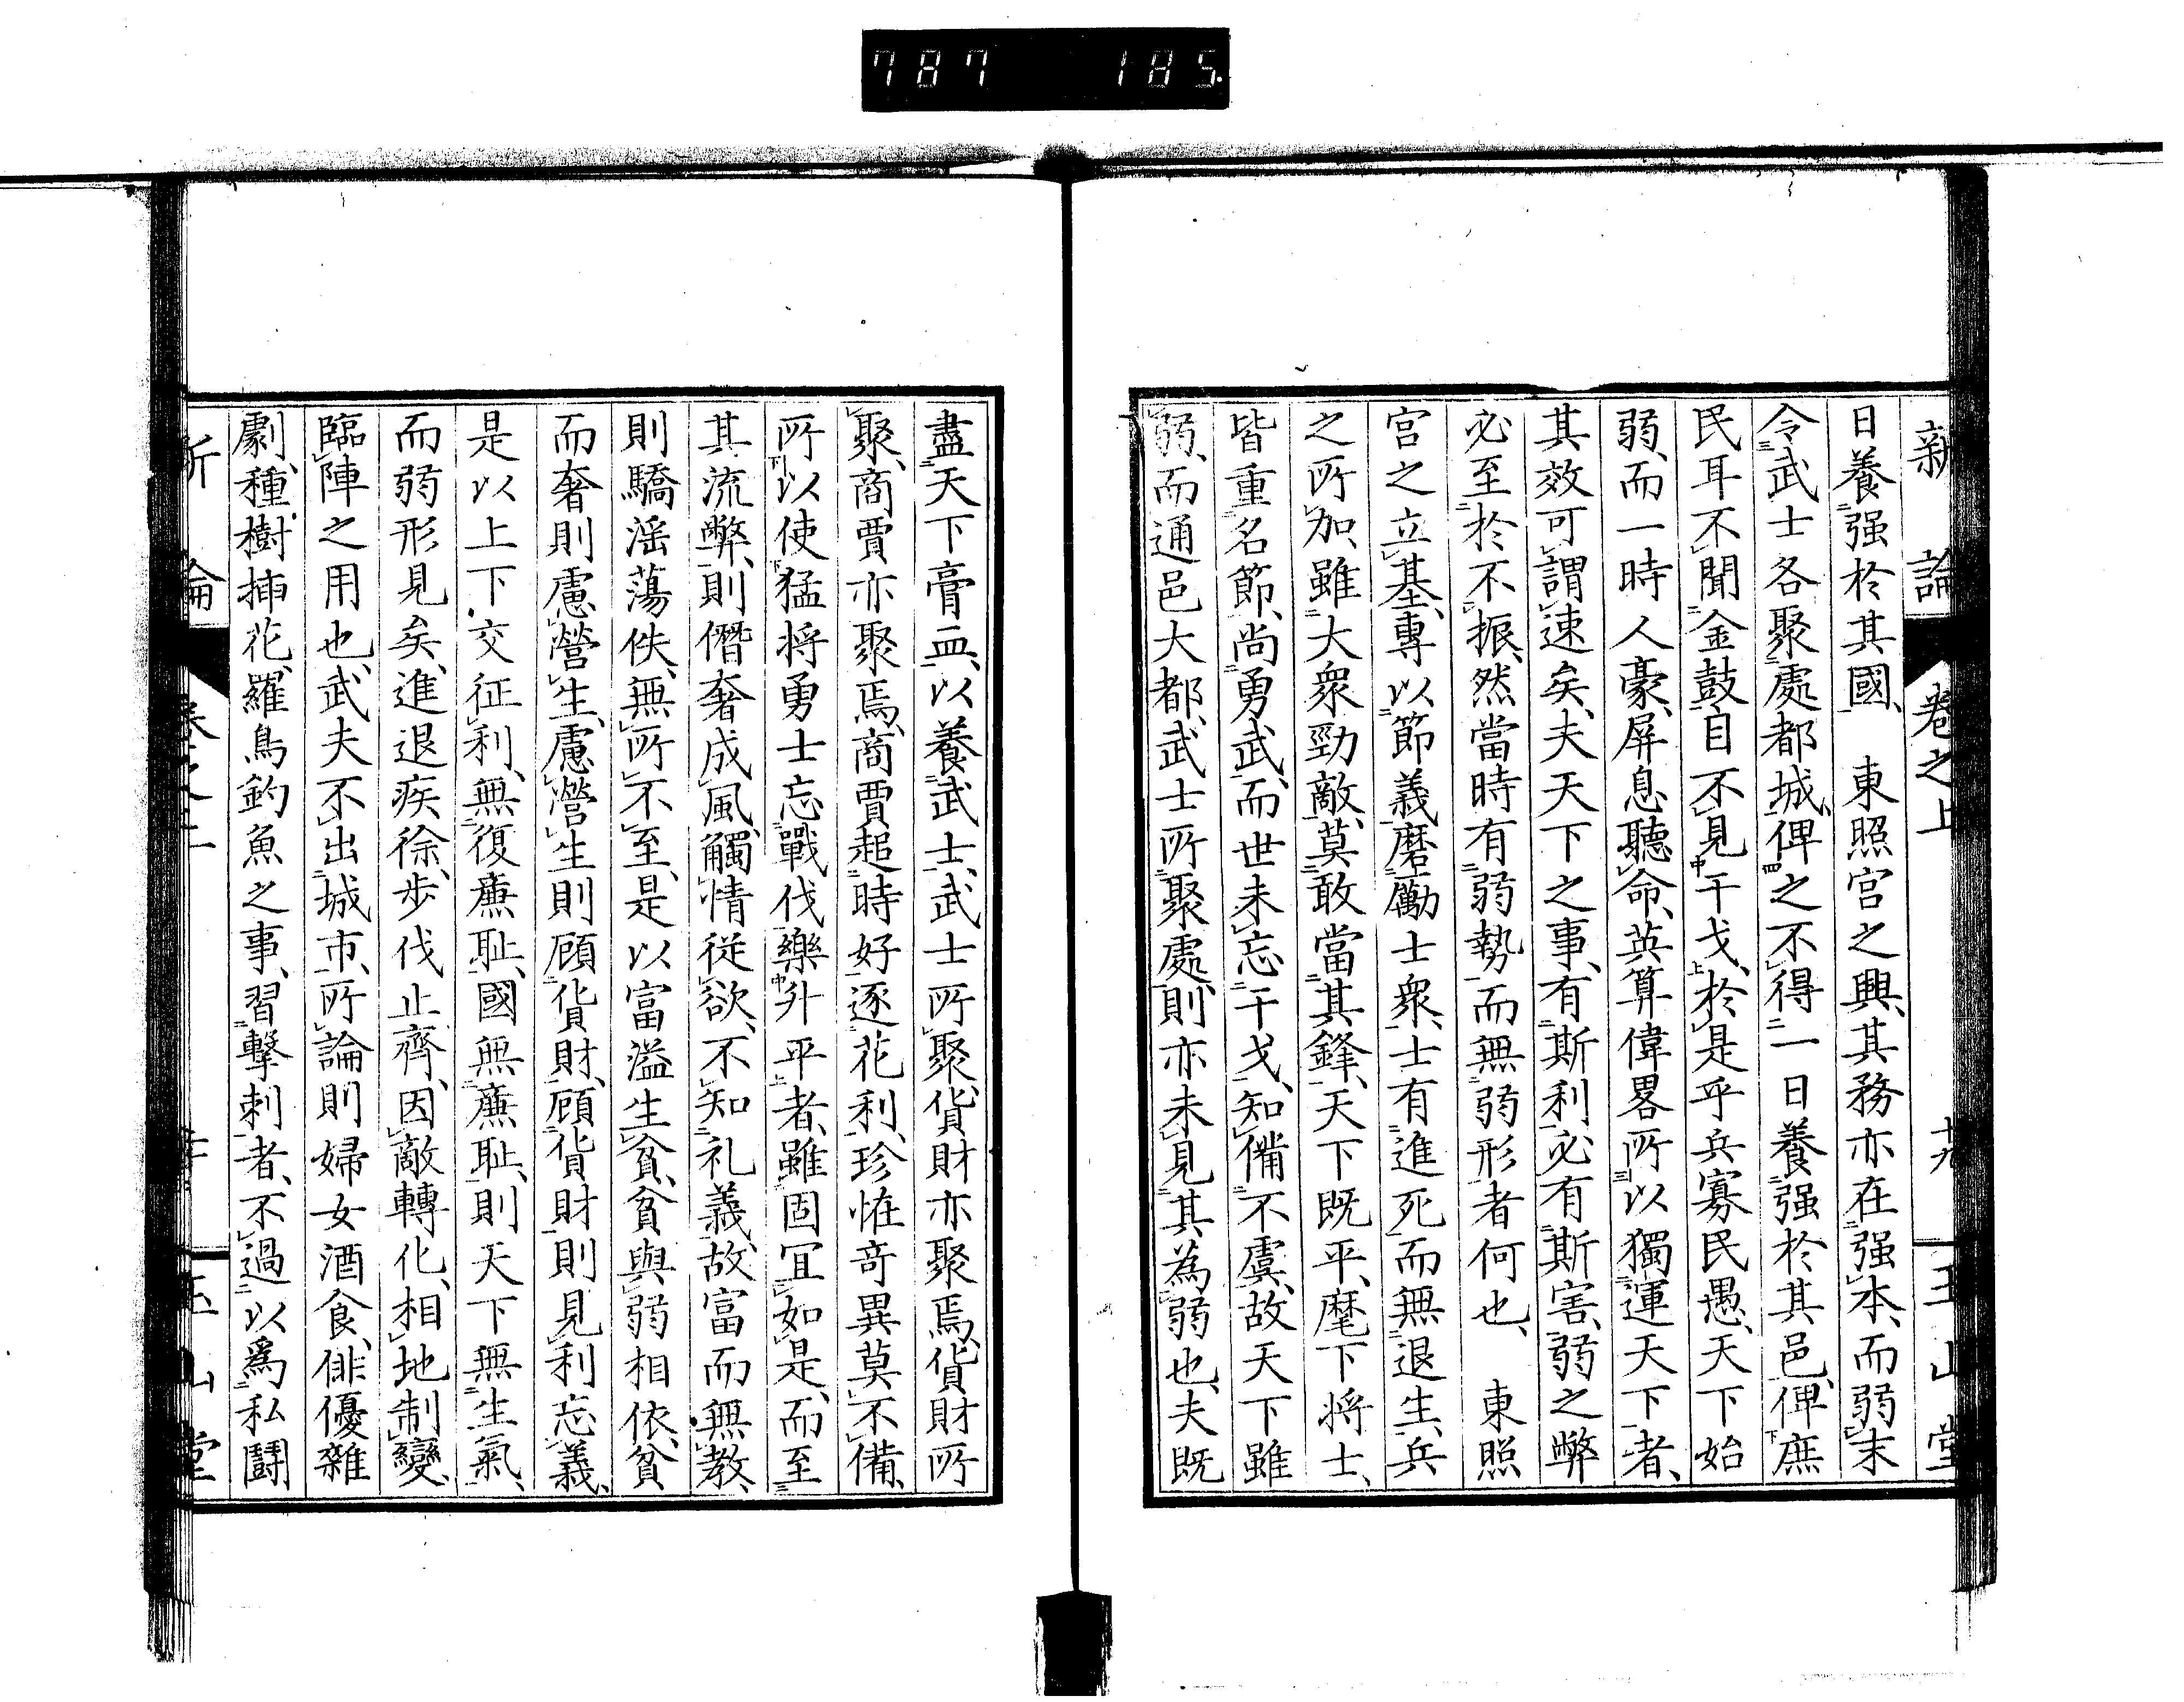 787 185
新論 卷之上 十九 玉山堂
日養强於其國、 東照宮之興、其務亦在强本、而弱末
令武士各聚處都城、俾之不得一日養强於其邑、俾庶
民耳不聞金鼓、目不見干戈、於是乎兵寡民愚、天下始
弱、而一時人豪、屏息聽命、英算偉畧所以獨運天下者、
其效可謂速矣、夫天下之事、有斯利必有斯害、弱之弊
必至於不振、然當時有弱勢而無弱形者何也、 東照
宮之立基、專以節義磨勵士衆、士有進死而無退生、兵
之所加、雖大衆勁敵、莫敢當其鋒、天下既平、麾下將士、
皆重名節、尚勇武、而世未忘干戈、知備不虞、故天下雖
弱、而通邑大都、武士所聚處、則亦未見其為弱也、夫既
盡天下膏血、以養武士、武士所聚、貨財亦聚焉、貨財所
聚、商賈亦聚焉、商賈趁時好、逐花利、珍怪竒異莫不備、
所以使猛將勇士忘戰伐、樂升平者、雖固冝如是、而至
其流弊、則僭奢成風、觸情從欲、不知礼義、故富而無教、
則驕滛蕩佚、無所不至、是以富溢生貧、貧與弱相依、貧
而奢則慮營生、慮營生則顧貨財、顧貨財則見利忘義、
是以上下交征利、無復亷耻、國無亷耻、則天下無生氣、
而弱形見矣、進退疾徐、步伐止齊、因敵轉化、相地制變、
臨陣之用也、武夫不出城市、所論則婦女酒食、俳優雜
劇、種樹挿花、羅鳥釣魚之事、習擊刺者、不過以爲私鬪
新論 卷之上 玉山堂